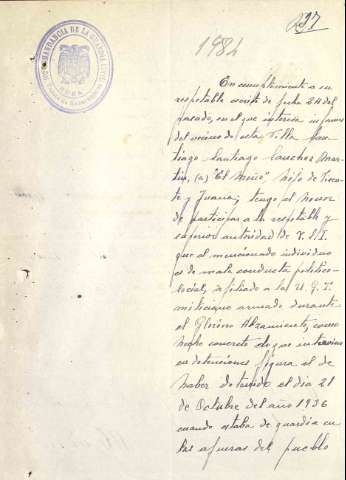 COMANDANCIA DE LA GUARDIA CIVIL
237
1984
En cumplimiento a su
respetable escrito de fecha 24 del
pasado, en el que interesa informes
del vecino de esta Villa San-
tiago Santiago Sanchez Mar-
tin, (a) "El Moño" hijo de Vicen-
te y Juana; tengo el honor
de participar a la respetable y
superior autoridad de V.S.I.
que el mencionado individuo
es de mala conducta politico-
social, afiliado a la U.G.T.
miliciano armado durante
el Glorioso Alzamiento, como
hecho concreto de que intervino
en detenciones figura el de
haber detenido el dia 21
de Octubre del año 1936
cuando estaba de guardia en
las afueras del pueblo